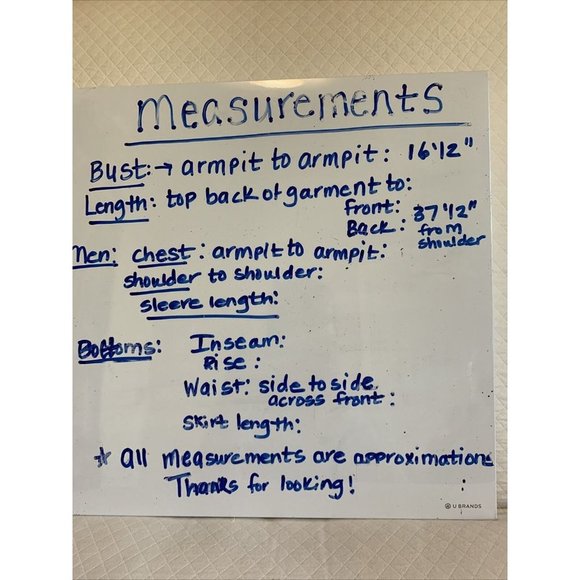 measurements
Bust:→ armpit to armpit: 16 1/2"
Length: top back of garment to:
front: 37 1/2"
Back: from shoulder
Men: chest: armpit to armpit:
shoulder to shoulder:
sleeve length:
Bottoms: Inseam:
Rise:
Waist: side to side
across front:
skirt length:
* all measurements are approximations
Thanks for looking!
U BRANDS